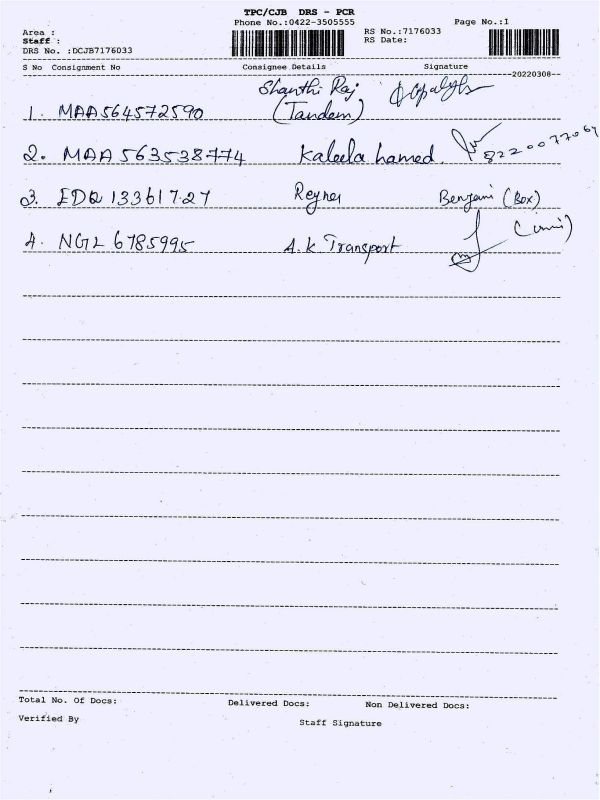 TPC/CJB DRS - PCR
Phone No.:0422-3505555 Page No.:1
Area :
Staff : RS No.:7176033
DRS No. :DCJB7176033 RS Date:
S No Consignment No Consignee Details Signature
--20220308--
1. MAA564572590 Shanthi Raj
(Tandem)
2. MAA 563538774 Kaleela hamed. 8220077064
3. EDQ 13361727 Reyner Benjami (Box)
4. NGL 6785995 A.K Transport
Total No. Of Docs: Delivered Docs: Non Delivered Docs:
Verified By Staff Signature